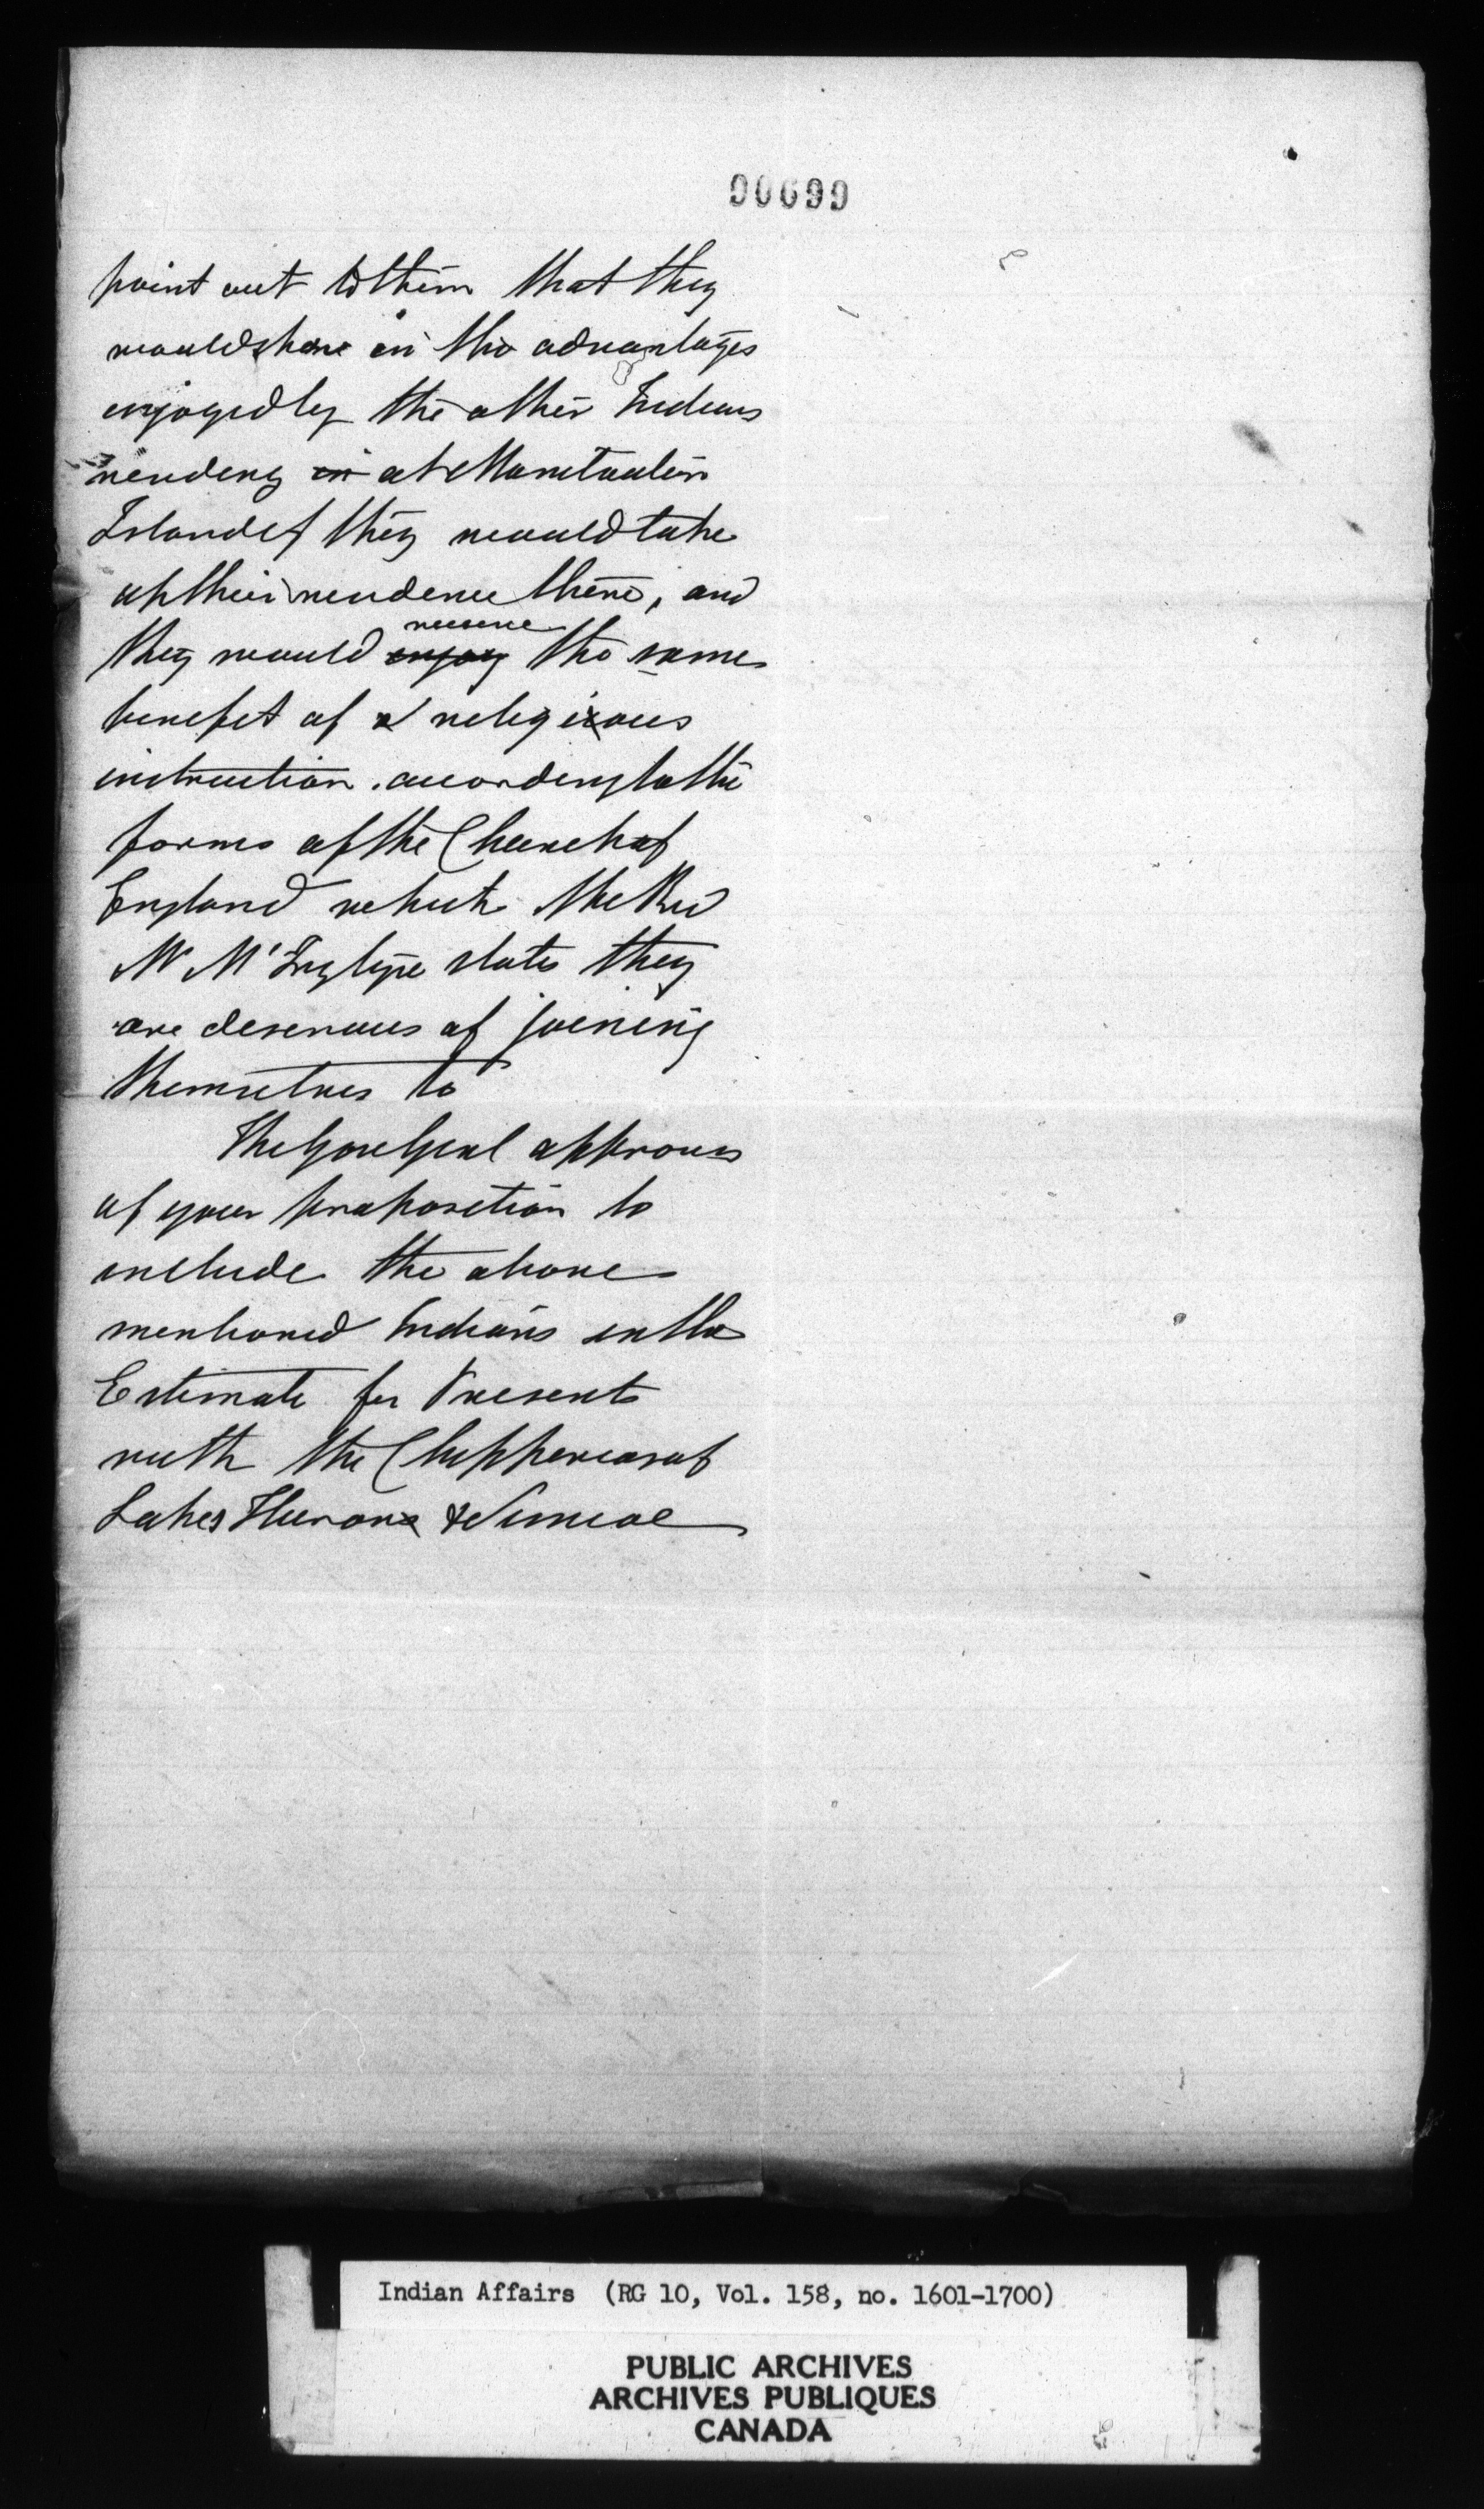 90699
point out to them that they
would share in the advantages
enjoyed by the other Indians
residing in at Manitoulin
Island if they would take
up their residence there, and
receive
they would enjoy the same
benefit of a religious
instruction according to the
forms of the Church of
England which the Revd
Mr states they
are desirous of joining
themselves to
The Gov Genl approves
of your proposition to
include the above
mentioned Indians in the
Estimate for Presents
with the Chippewas of
Lakes Huron & Simcoe
Indian Affairs (RG 10, Vol. 158, no. 1601-1700)
PUBLIC ARCHIVES
ARCHIVES PUBLIQUES
CANADA